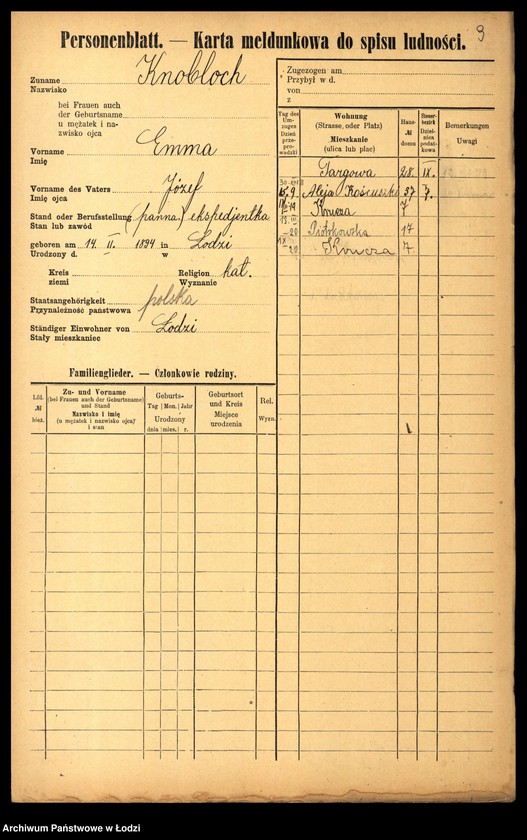 3
Personenblatt. — Karta meldunkowa do spisu ludności.
Zuname Knobloch
Nazwisko
bei Frauen auch
der Geburtsname
u mężatek i na-
zwisko ojca
Vorname Emma
Imię
Vorname des Vaters Józef
Imię ojca
Stand oder Berufsstellung (panna) ekspedjentka
Stan lub zawód
geboren am 14. II. 1894 in Łodzi
Urodzony d. w
Kreis Religion kat.
ziemi Wyznanie
Staatsangehörigkeit polska
Przynależność państwowa
Ständiger Einwohner von Łodzi
Stały mieszkaniec
Familienglieder. — Członkowie rodziny.
Lfd. № bież.
Zu- und Vorname
(bei Frauen auch der Geburtsname)
und Stand
Nazwisko i imię
(u mężatek i nazwisko ojca)
i stan
Geburts-
Tag Mon. Jahr
Urodzony
dnia mies. r.
Geburtsort
und Kreis
Miejsce
urodzenia
Rel.
Wyzn.
Zugezogen am
Przybył w d.
von
z
Tag des
Um-
zuges
Dzień
prze-
prowadzki
Wohnung
(Strasse, oder Platz)
Mieszkanie
(ulica lub plac)
Haus-
№
domu
Steuer-
bezirk
Dziel-
nica
podat-
kowa
Bemerkungen
Uwagi
Targowa 28 IX.
Aleja Kościuszki 37
Krucza 7
Piotrkowska 17
Krucza 7.
Archiwum Państwowe w Łodzi